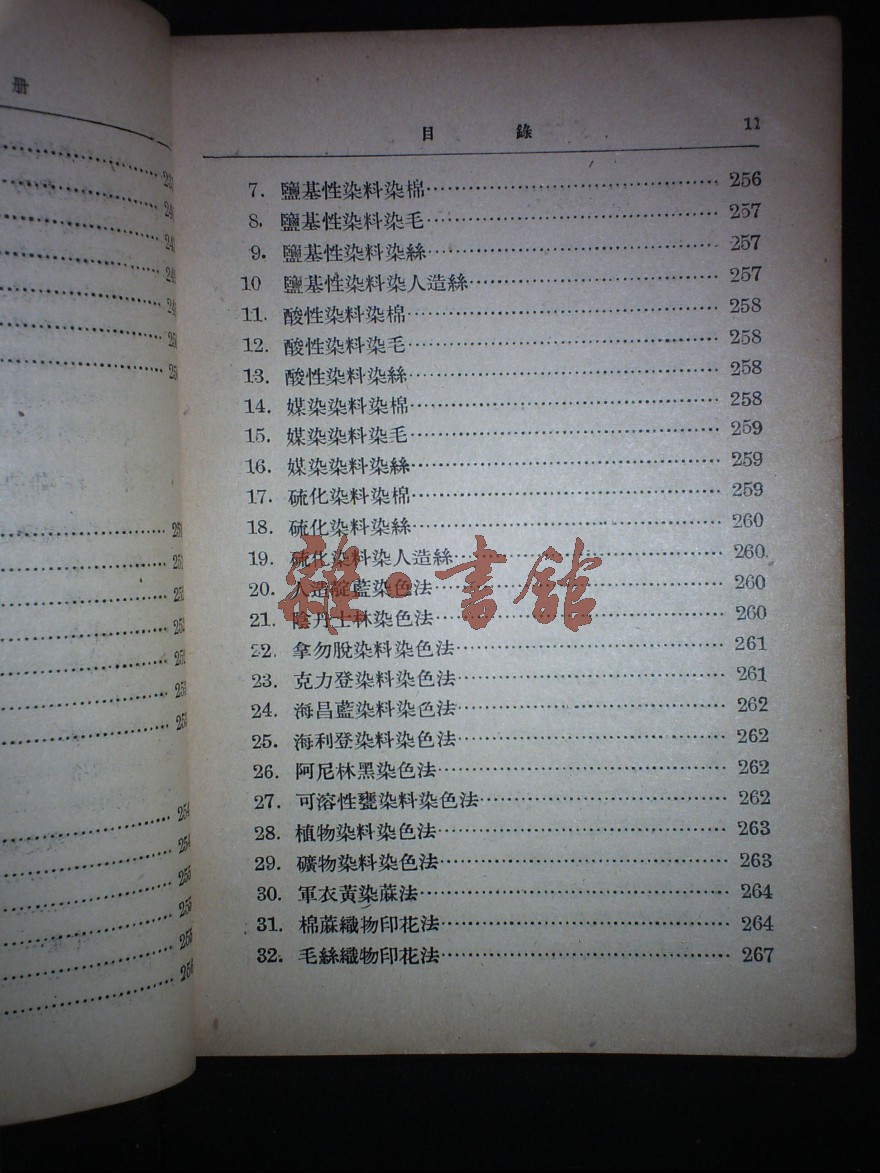 册
目 錄 11
7. 鹽基性染料染棉 256
8. 鹽基性染料染毛 257
9. 鹽基性染料染絲 257
10 鹽基性染料染人造絲 257
11. 酸性染料染棉 258
12. 酸性染料染毛 258
13. 酸性染料染絲 258
14. 媒染染料染棉 258
15. 媒染染料染毛 259
16. 媒染染料染絲 259
17. 硫化染料染棉 259
18. 硫化染料染絲 260
19. 硫化染料染人造絲 260
20. 人造靛藍染色法 260
21. 陰丹士林染色法 260
22. 拿勿脫染料染色法 261
23. 克力登染料染色法 261
24. 海昌藍染料染色法 262
25. 海利登染料染色法 262
26. 阿尼林黑染色法 262
27. 可溶性甕染料染色法 262
28. 植物染料染色法 263
29. 礦物染料染色法 263
30. 軍衣黃染蔴法 264
31. 棉蔴織物印花法 264
32. 毛絲織物印花法 267
254
254
255
255
255
256
雜·書館